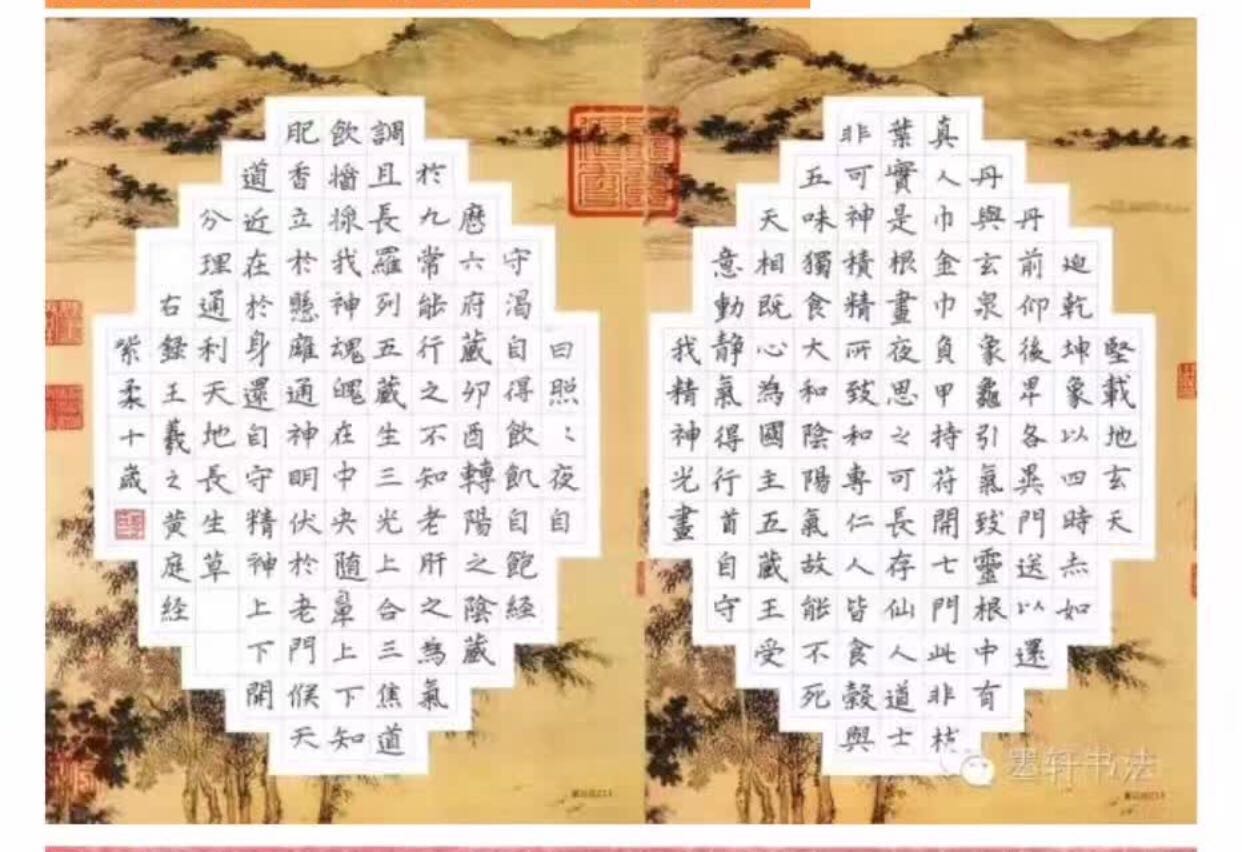 堅載地玄天
迆乾坤象以四時赤如
丹前仰後卑各異門送以還
丹與玄泉象龜引氣致靈根中有
真人巾金巾負甲持符開七門此非枝
葉實是根晝夜思之可長存仙人道士
非可神積精所致和專仁人皆食穀與
五味獨食大和陰陽氣故能不死
天相既心為國主五藏王受
意動靜氣得行首自守
我精神光晝
日照〻夜自
守渴自得飲飢自飽経
歷六府藏卯酉轉陽之陰藏
於九常能行之不知老肝之為氣
調且長羅列五藏生三光上合三焦道
飲醬採我神魂魄在中央隨鼻上下知
肥香立於懸雍通神明伏於老門候天
道近在於身還自守精神上下開
分理通利天地長生草
右錄王羲之黄庭経
紫柔十歲
墨轩书法